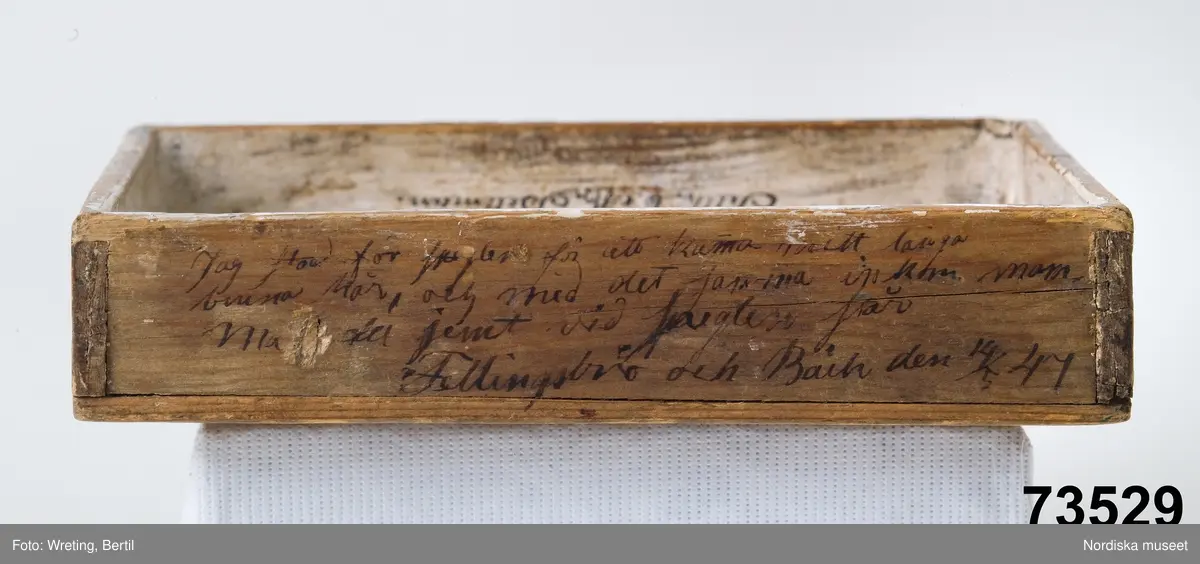 Jag stod för speglen för att kama mitt långa
bruna hår, och med det samma inkom mam
Ma jemt vid speglen står
Fellingsbro och Bäck den 14/5 47
73529
Foto: Wreting, Bertil
Nordiska museet